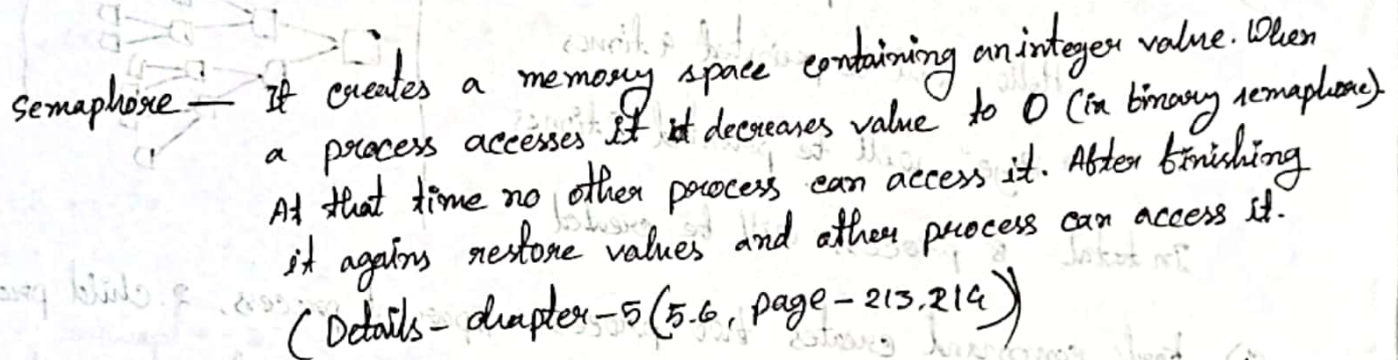 Semaphore — It creates a memory space containing an integer value. When
a process accesses it it decreases value to 0 (in binary semaphore).
At that time no other process can access it. After finishing
it agains restore values and other process can access it.
(Details - chapter - 5 (5.6, page - 213.214))